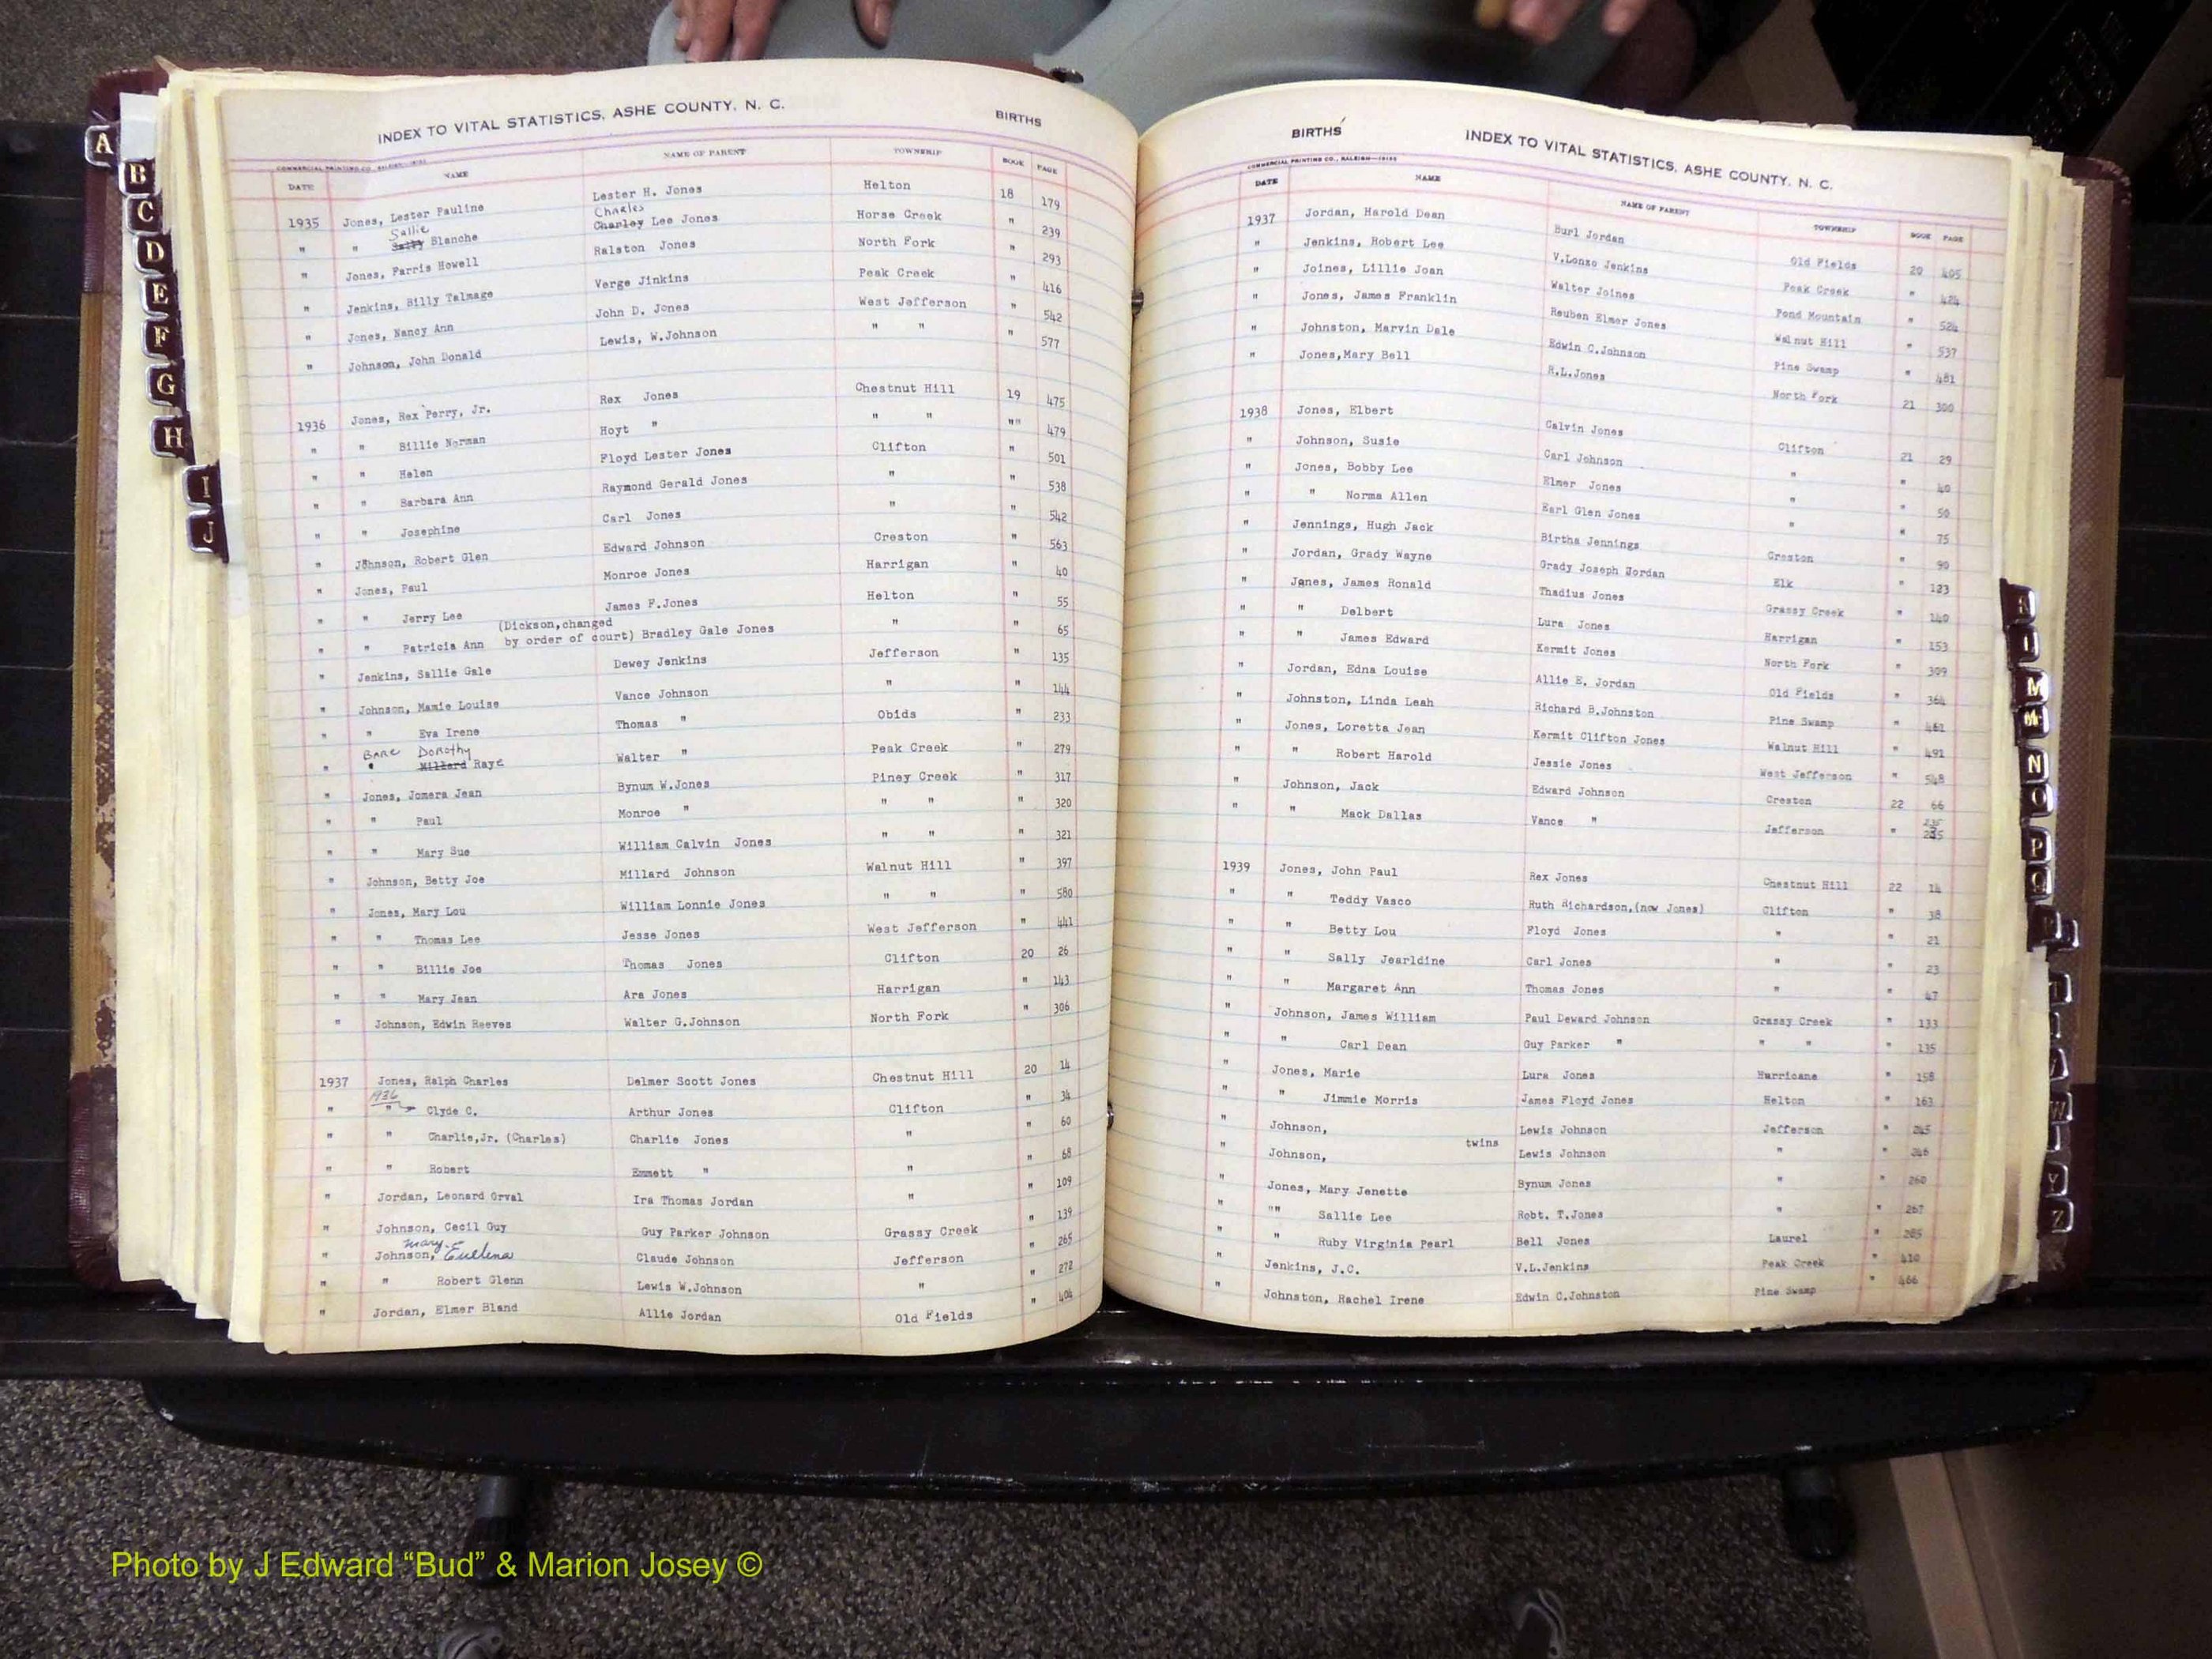 A
B
C
D
E
F
G
H
I
J
INDEX TO VITAL STATISTICS, ASHE COUNTY, N. C. BIRTHS
COMMERCIAL PRINTING CO., RALEIGH—
DATE NAME NAME OF PARENT TOWNSHIP BOOK PAGE
1935 Jones, Lester Pauline Lester H. Jones Helton 18 179
" " Sallie Blanche Charles Charley Lee Jones Horse Creek " 239
" Jones, Farris Howell Ralston Jones North Fork " 293
" Jenkins, Billy Talmage Verge Jinkins Peak Creek " 416
" Jones, Nancy Ann John D. Jones West Jefferson " 542
" Johnson, John Donald Lewis, W.Johnson " " " 577
1936 Jones, Rex Perry, Jr. Rex Jones Chestnut Hill 19 475
" " Billie Norman Hoyt " " " "" 479
" " Helen Floyd Lester Jones Clifton " 501
" " Barbara Ann Raymond Gerald Jones " " 538
" " Josephine Carl Jones " " 542
" Johnson, Robert Glen Edward Johnson Creston " 563
" Jones, Paul Monroe Jones Harrigan " 40
" " Jerry Lee James F.Jones Helton " 55
" " Patricia Ann (Dickson,changed by order of court) Bradley Gale Jones " " 65
" Jenkins, Sallie Gale Dewey Jenkins Jefferson " 135
" Johnson, Mamie Louise Vance Johnson " " 144
" " Eva Irene Thomas " Obids " 233
" Bare Dorothy Millard Raye Walter " Peak Creek " 279
" Jones, Jomera Jean Bynum W.Jones Piney Creek " 317
" " Paul Monroe " " " " 320
" " Mary Sue William Calvin Jones " " " 321
" Johnson, Betty Joe Millard Johnson Walnut Hill " 397
" Jones, Mary Lou William Lonnie Jones " " " 580
" " Thomas Lee Jesse Jones West Jefferson " 441
" " Billie Joe Thomas Jones Clifton 20 26
" " Mary Jean Ara Jones Harrigan " 143
" Johnson, Edwin Reeves Walter G.Johnson North Fork " 306
1937 Jones, Ralph Charles Delmer Scott Jones Chestnut Hill 20 14
1936
" " Clyde C. Arthur Jones Clifton " 34
" " Charlie,Jr. (Charles) Charlie Jones " " 60
" " Robert Emmett " " " 68
" Jordan, Leonard Orval Ira Thomas Jordan " " 109
" Johnson, Cecil Guy Guy Parker Johnson Grassy Creek " 139
" Johnson, Mary Euelena Claude Johnson Jefferson " 265
" " Robert Glenn Lewis W.Johnson " " 272
" Jordan, Elmer Bland Allie Jordan Old Fields " 404
BIRTHS INDEX TO VITAL STATISTICS, ASHE COUNTY, N. C.
COMMERCIAL PRINTING CO., RALEIGH—
DATE NAME NAME OF PARENT TOWNSHIP BOOK PAGE
1937 Jordan, Harold Dean Burl Jordan Old Fields 20 405
" Jenkins, Robert Lee V.Lonzo Jenkins Peak Creek " 424
" Joines, Lillie Joan Walter Joines Pond Mountain " 524
" Jones, James Franklin Reuben Elmer Jones Walnut Hill " 537
" Johnston, Marvin Dale Edwin C.Johnson Pine Swamp " 481
" Jones,Mary Bell R.L.Jones North Fork 21 300
1938 Jones, Elbert Calvin Jones Clifton 21 29
" Johnson, Susie Carl Johnson " " 40
" Jones, Bobby Lee Elmer Jones " " 50
" " Norma Allen Earl Glen Jones " " 75
" Jennings, Hugh Jack Birtha Jennings Creston " 90
" Jordan, Grady Wayne Grady Joseph Jordan Elk " 123
" Jones, James Ronald Thadius Jones Grassy Creek " 140
" " Delbert Lura Jones Harrigan " 153
" " James Edward Kermit Jones North Fork " 309
" Jordan, Edna Louise Allie E. Jordan Old Fields " 364
" Johnston, Linda Leah Richard B.Johnston Pine Swamp " 461
" Jones, Loretta Jean Kermit Clifton Jones Walnut Hill " 491
" " Robert Harold Jessie Jones West Jefferson " 548
" Johnson, Jack Edward Johnson Creston 22 66
" " Mack Dallas Vance " Jefferson "
1939 Jones, John Paul Rex Jones Chestnut Hill 22 14
" " Teddy Vasco Ruth Richardson,(now Jones) Clifton " 38
" " Betty Lou Floyd Jones " " 21
" " Sally Jearldine Carl Jones " " 23
" " Margaret Ann Thomas Jones " " 47
" Johnson, James William Paul Deward Johnson Grassy Creek " 133
" " Carl Dean Guy Parker " " " " 135
" Jones, Marie Lura Jones Hurricane " 158
" " Jimmie Morris James Floyd Jones Helton " 163
" Johnson, Lewis Johnson Jefferson " 245
twins
" Johnson, Lewis Johnson " " 246
" Jones, Mary Jenette Bynum Jones " " 260
" "" Sallie Lee Robt. T.Jones " " 267
" " Ruby Virginia Pearl Bell Jones Laurel " 285
" Jenkins, J.C. V.L.Jenkins Peak Creek " 410
" Johnston, Rachel Irene Edwin C.Johnston Pine Swamp " 466
M
N
O
P
Q
W
Y
Z
Photo by J Edward “Bud” & Marion Josey ©